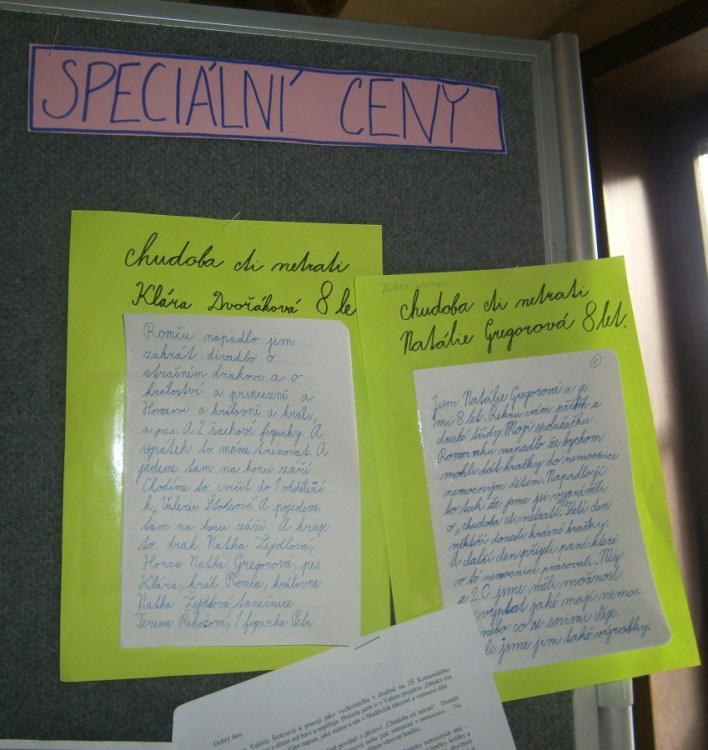 SPECIÁLNÍ CENY
chudoba cti netratí
Klára Dvořáková 8 le
Romču napadlo jem
zahrát divadlo o
strašném drakovi a o
království a princezně a
Honzovi a královně a králi,
a pes. A 2 šachové figurky. A
zpátek to máme trénovat. A
jedeme tam na konci září.
Chodíme to cvičit do 1 oddělění
k Valerii Štokrové. A pojedem
tam na konci září. A hraje
to drak Natka Žejdlová,
Honza Natka Gregorová, pes
Klára, král Romča, královna
Natka Žejdlová, tanečnice
Tereza Řehořová, 1 figurka Petr
chudoba cti netratí
Natálie Gregorová 8 let.
1
Jsem Natálie Gregorová a je
mi 8 let. Řeknu vám příběh z
druhé třídy. Moji spolužačku
Romanku napadlo že bychom
mohli dát hračky do nemocnice
nemocným dětem. Napadlo ji
to tak že jsme si vyprávěli
o „chudoba cti netratí. Další den
někteří donesli krásné hračky.
A další den přijeli paní které
v té nemocnici pracovali. My
z 2.C jsme měli možnost
vyptat jaké mají nemoc
nebo co se s nimi děje.
li jsme jim také výrobky.
Dobrý den,
Valérie Štokrová a pracuji jako vychovatelka v družině na ZŠ Komenského